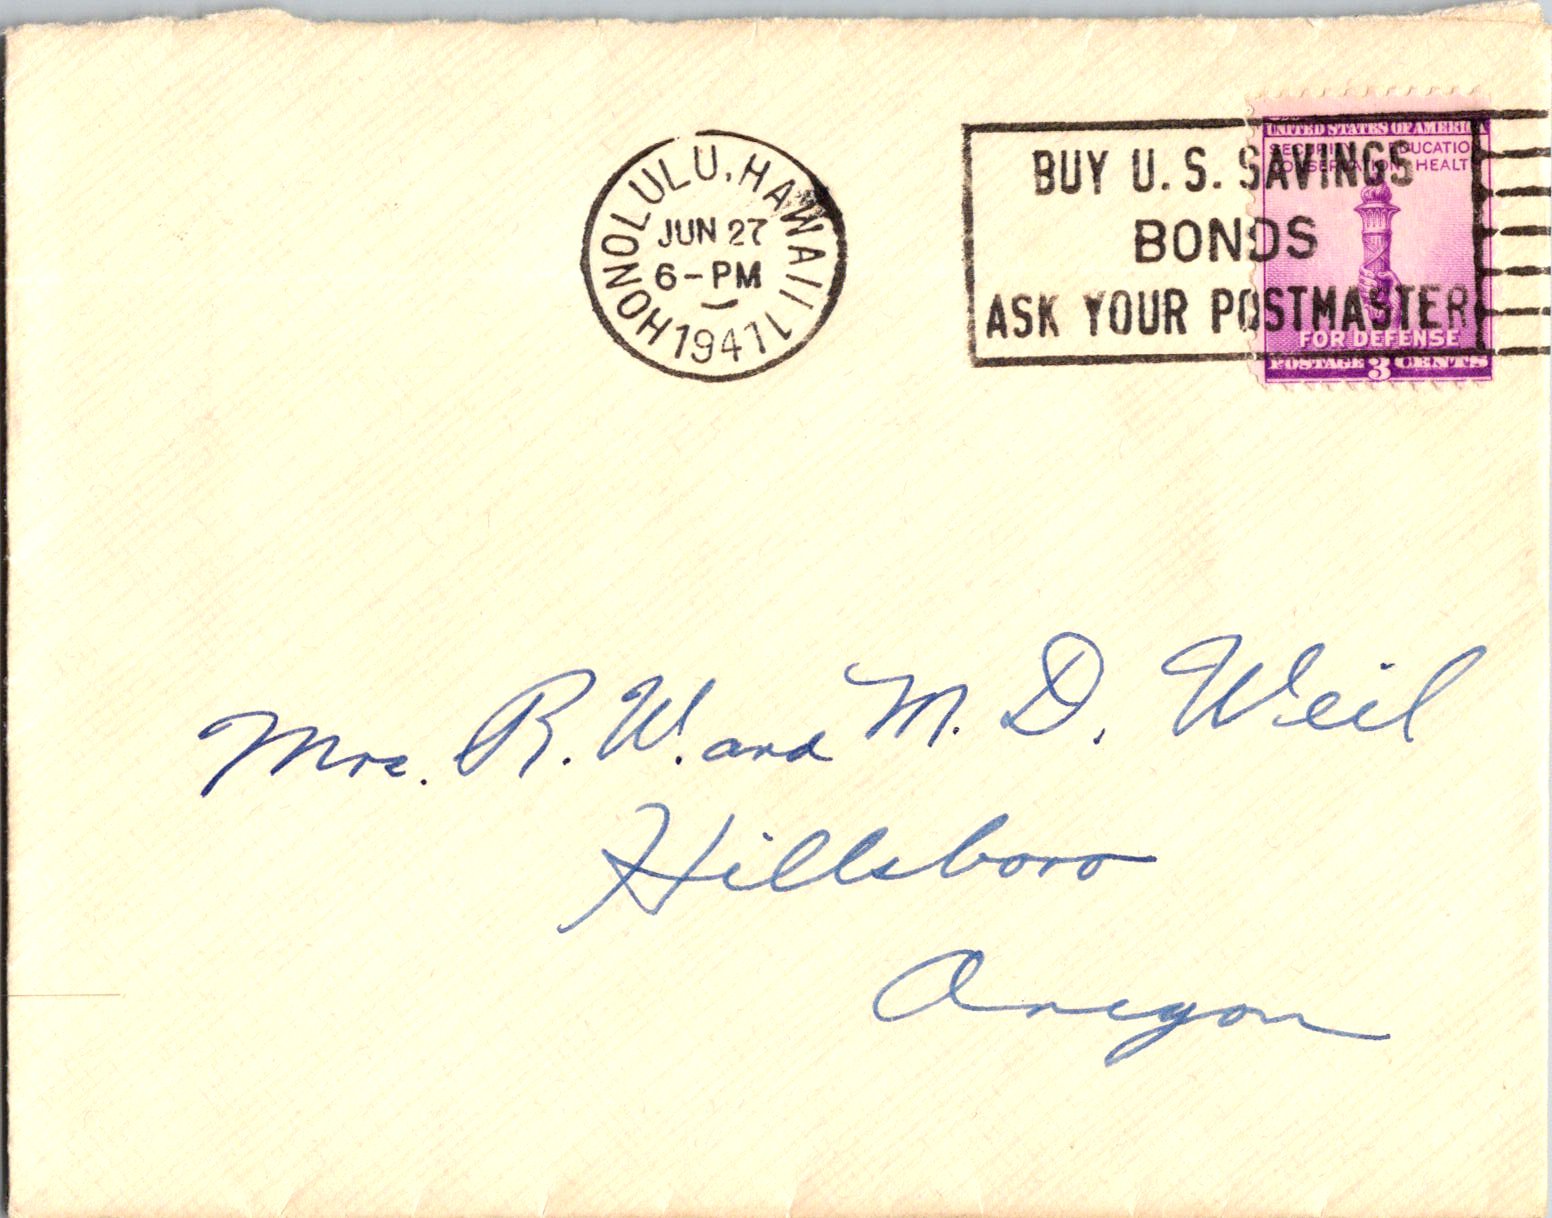 HONOLULU, HAWAII
JUN 27
6-PM
1941
BUY U.S. SAVINGS
BONDS
ASK YOUR POSTMASTER
UNITED STATES OF AMERICA
SECURITY EDUCATIO
CONSERVATION HEALT
FOR DEFENSE
POSTAGE 3 CENTS
Mrs. R. W. and M. D. Weil
Hillsboro
Oregon